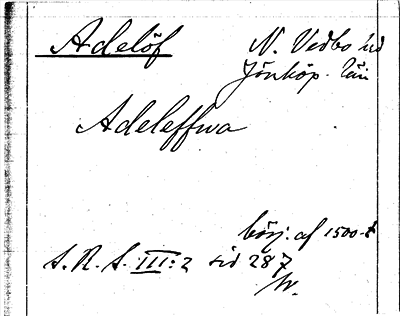 Adelöf N. Vedbo hd
Jönköp. län
Adeleffwa
börj. af 1500-t
S. R. S. III:2 sid 287
W.